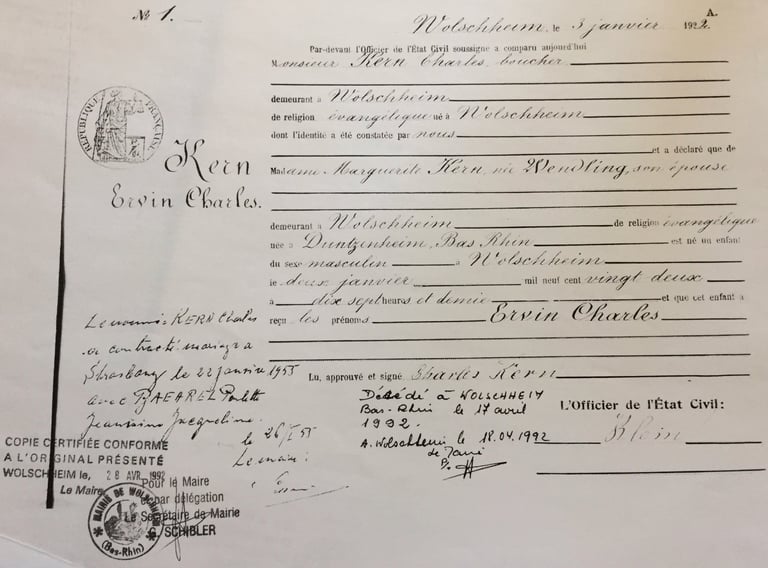 No 1.
A.
Wolschheim, le 3 janvier 1922.
Par-devant l'Officier de l'État Civil soussigné a comparu aujourd'hui
Monsieur Kern Charles, boucher
demeurant à Wolschheim
de religion évangélique né à Wolschheim
dont l'identité a été constatée par nous
et a déclaré que de
Madame Marguerite Kern née Wendling, son épouse
demeurant à Wolschheim de religion évangélique
née à Duntzenheim, Bas Rhin est né un enfant
du sexe masculin à Wolschheim
le deux janvier mil neuf cent vingt deux
à dix sept heures et demie et que cet enfant a
reçu les prénoms Ervin Charles
Lu, approuvé et signé Charles Kern
L'Officier de l'État Civil:
Klein
RÉPUBLIQUE FRANÇAISE
Kern
Ervin Charles.
Le nommé KERN Charles
a contracté mariage à
Strasbourg le 22 janvier 1955
avec Paulette
Jacqueline
le 26/I 55
Le maire:
Décédé à WOLSCHHEIM
Bas-Rhin le 17 avril
1992.
A Wolschheim le 18.04.1992
le Maire
COPIE CERTIFIÉE CONFORME
A L'ORIGINAL PRÉSENTÉ
WOLSCHHEIM le, 28 AVR. 1992
Le Maire
Pour le Maire
et par délégation
Le Secrétaire de Mairie
SCHIBLER
MAIRIE DE WOLSCHHEIM
(Bas-Rhin)